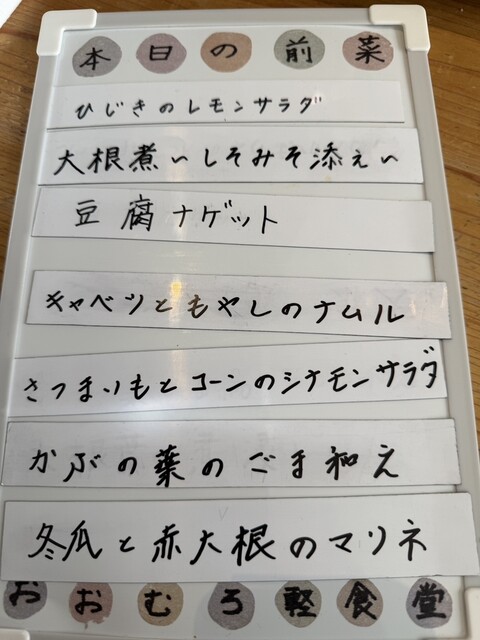 本日の前菜
ひじきのレモンサラダ
大根煮~しそみそ添え~
豆腐ナゲット
キャベツともやしのナムル
さつまいもとコーンのシナモンサラダ
かぶの葉のごま和え
冬瓜と赤大根のマリネ
おおむろ軽食堂